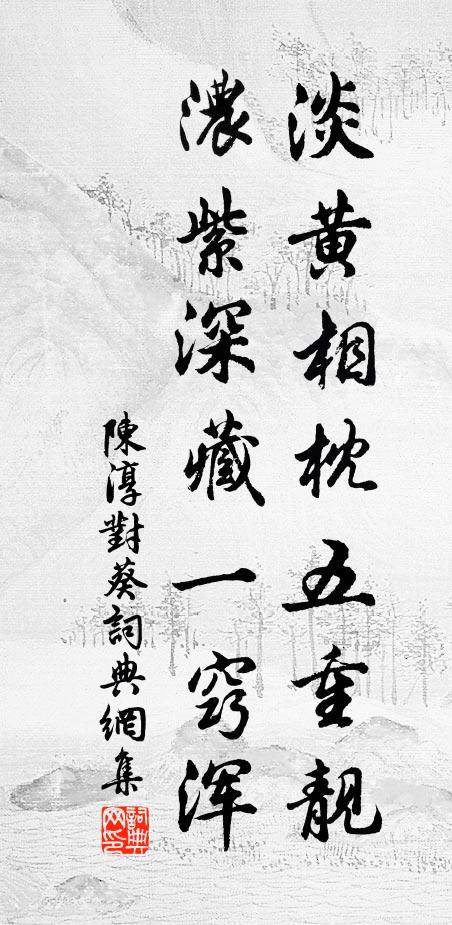 淡黃相枕五重靚
濃紫深藏一窍渾
陳淳對葵詞典網集
詞典网印